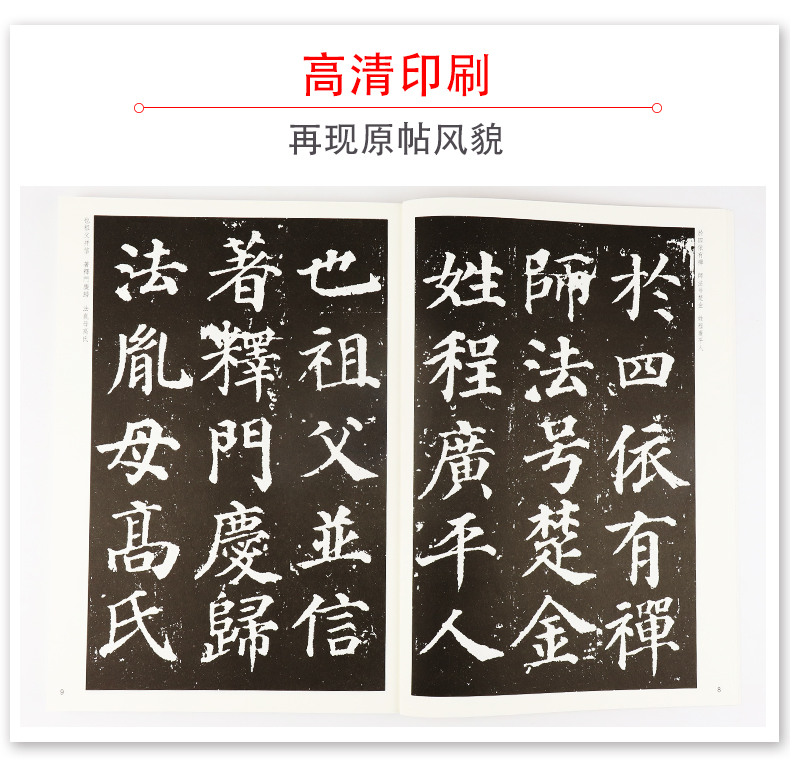 高清印刷
再现原帖风貌
於四依有禪
師法号楚金
姓程廣平人
8
也祖父並信
著釋門慶歸
法胤母髙氏
9